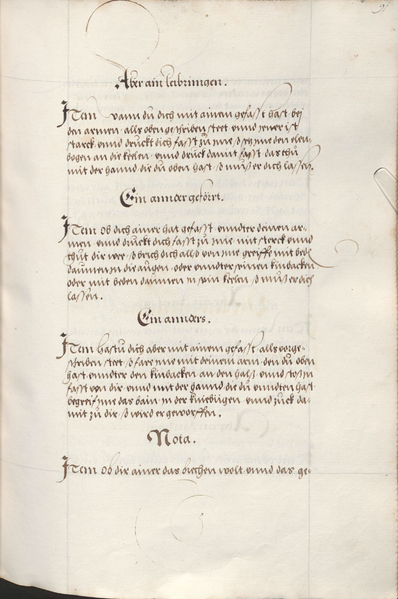 Aber ain leibringen.
Item wann du dich mit ainem gefasst hast bei
den armen als oben geschriben stett unnd jener ist
starck unnd druckt dich fasst zu ime so setz ime den elen-
bogen an die kelen unnd druck damit fasst das thu
mit der hannd die du oben hast so muss er dich lassen.
Ein annder gefört.
Item ob dich ainer hat gefasst unndter deinen ar-
men unnd druckt dich fasst zu ime mit sterck unnd
thut dir wee so brich dich also von ime greiffe mit bede
daumen in die augen oder unndter seinen kinbacken
oder mit beden daumen in sein kelen so muss er dich
lassen.
Ein annders.
Item hastu dich aber mit ainem gefasst alls vorge-
schriben stett so far ime mit deinem arm den du oben
hast unndter den kinbacken an den hals unnd stoss in
fasst von dir unnd mit der hannd die du unndten hast
begreif ime das bain in der kniebügen unnd zuck da-
mit zu dir so wird er geworffen.
Nota.
Item ob dir ainer das brechen wolt unnd das ge-